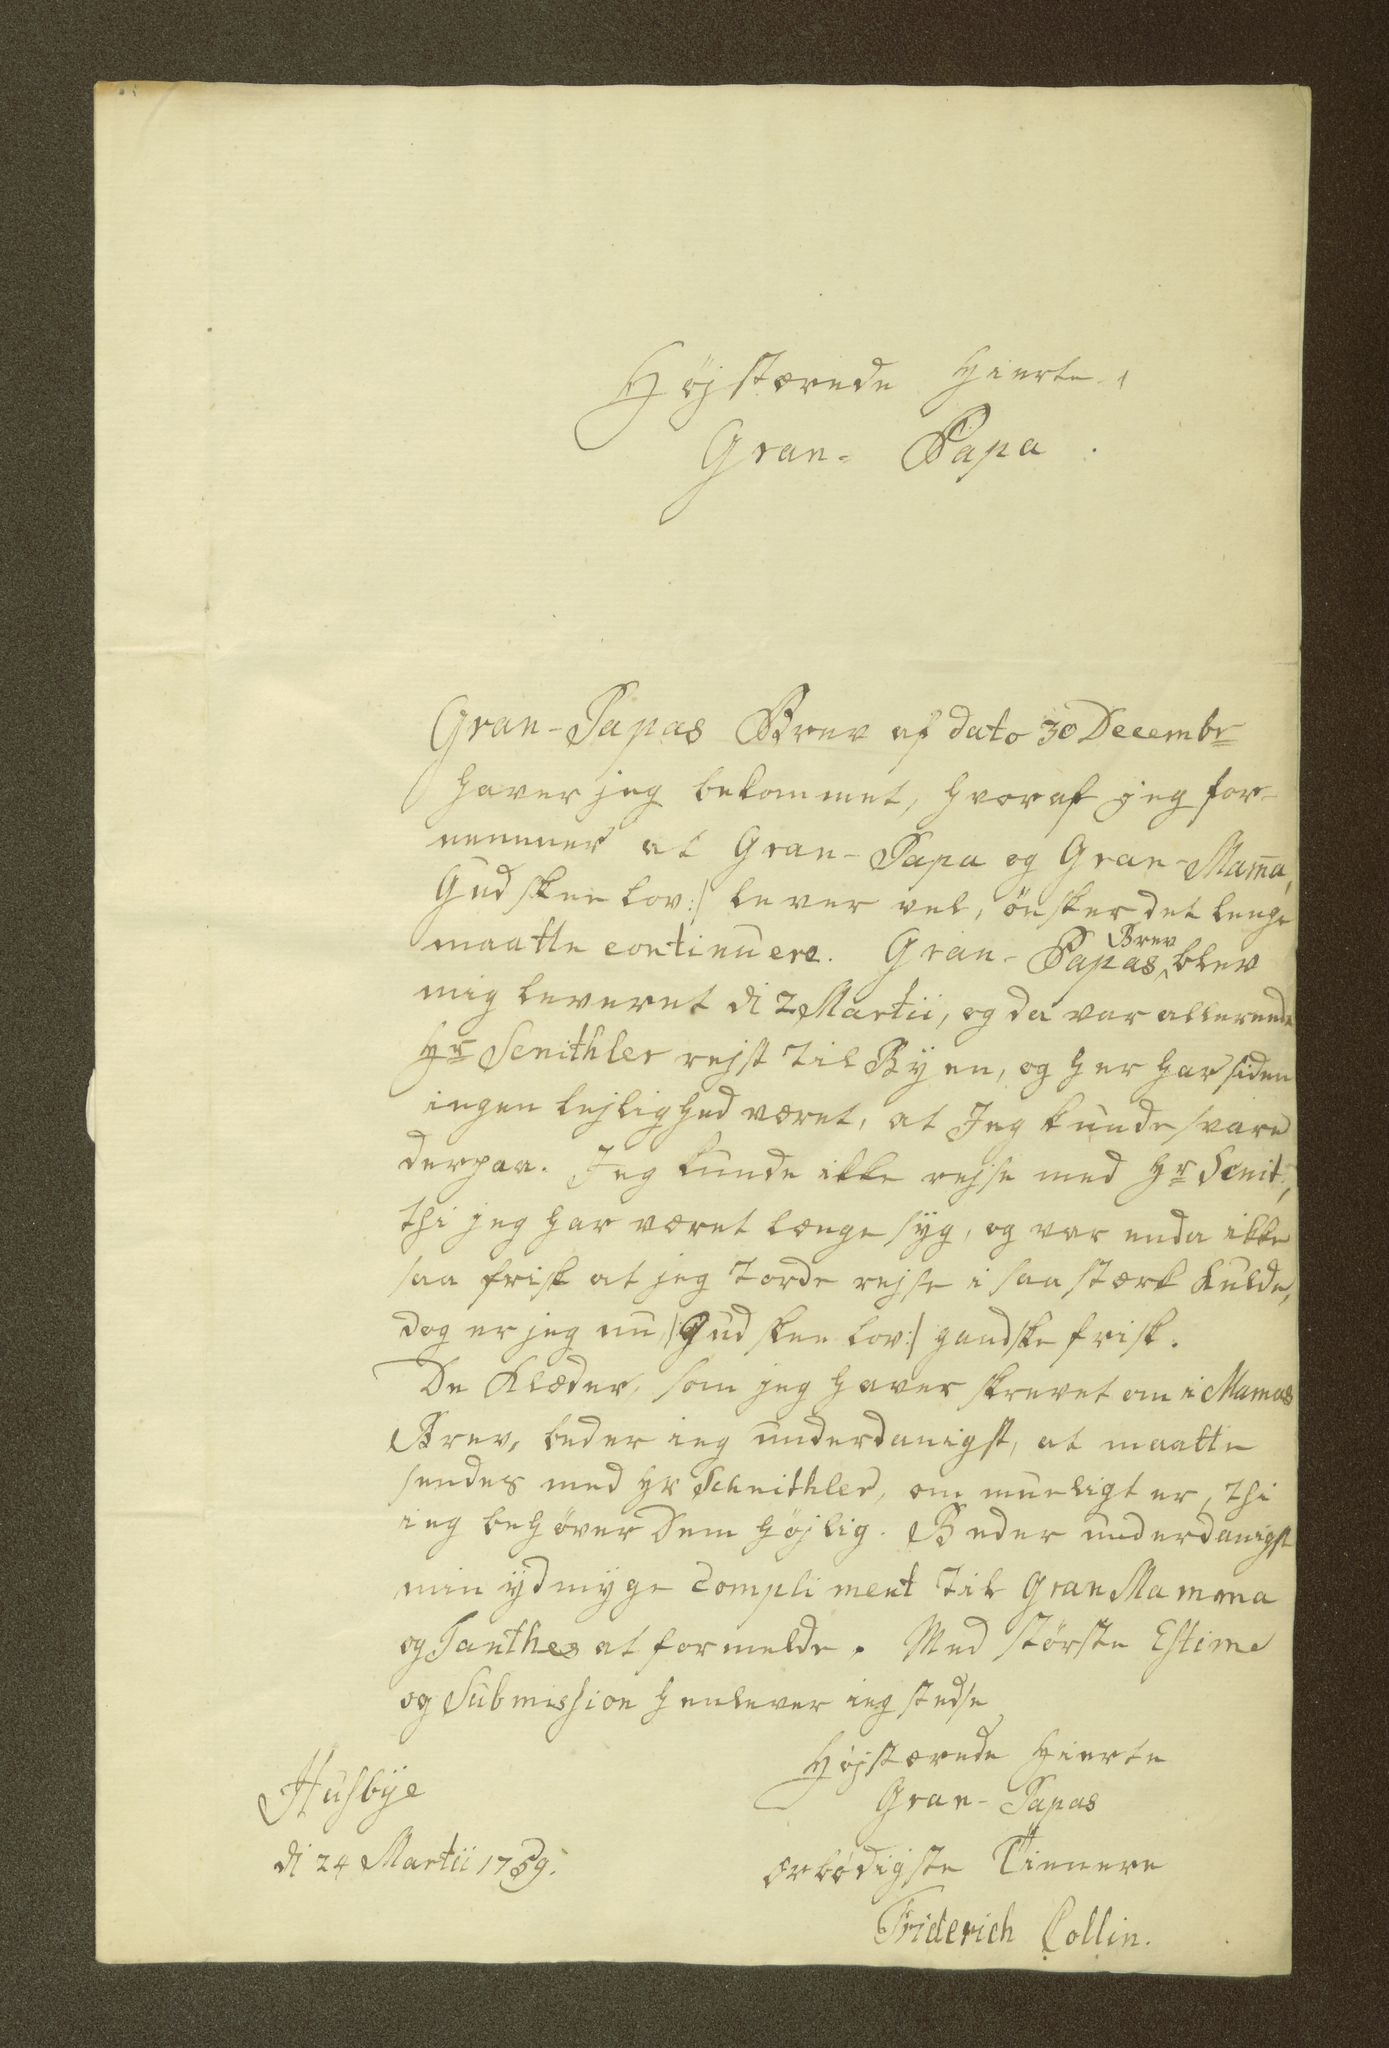 Højstærede Hierte
Gran- Papa.
Gran-Papas Brev af dato 30 Decembr
haver jeg bekommet, hvoraf jeg for-
nemmer at Gran-Papa og Gran-Mam̄a,
Gud skee lov:/ lever vel, önsker det lenge
maatte continuere. Gran-Papas Brev blev
mig leveret di 2 Martii, og da var allerende
Hr Senithler rejst til Byen, og her har siden
ingen lejlighed været, at Jeg kunde svare
derpaa. Jeg kunde ikke rejse med Hr Senit:,
thi jeg har været længe syg, og var enda ikke
saa frisk at jeg torde rejse i saa stærk Kulde,
dog er jeg nu /:Gud skee lov:/ gandske frisk.
De Klæder, som jeg haver skrevet om i Mamas
Brev, beder ieg underdanigst, at maatte
sendes med Hr Schnithler, om mueligt er, thi
ieg behøver Dem højlig. Beder underdanigst
min ydmyge Compliment til Gran Mamma
og Tanthes at formelde. Med störste Estime
og Submission henlever ieg stedse
Højstærede Hierte
Gran-Papas
ærbødigste Tienere
Friderich Collin.
Husbye
di 24 Martii 1759.